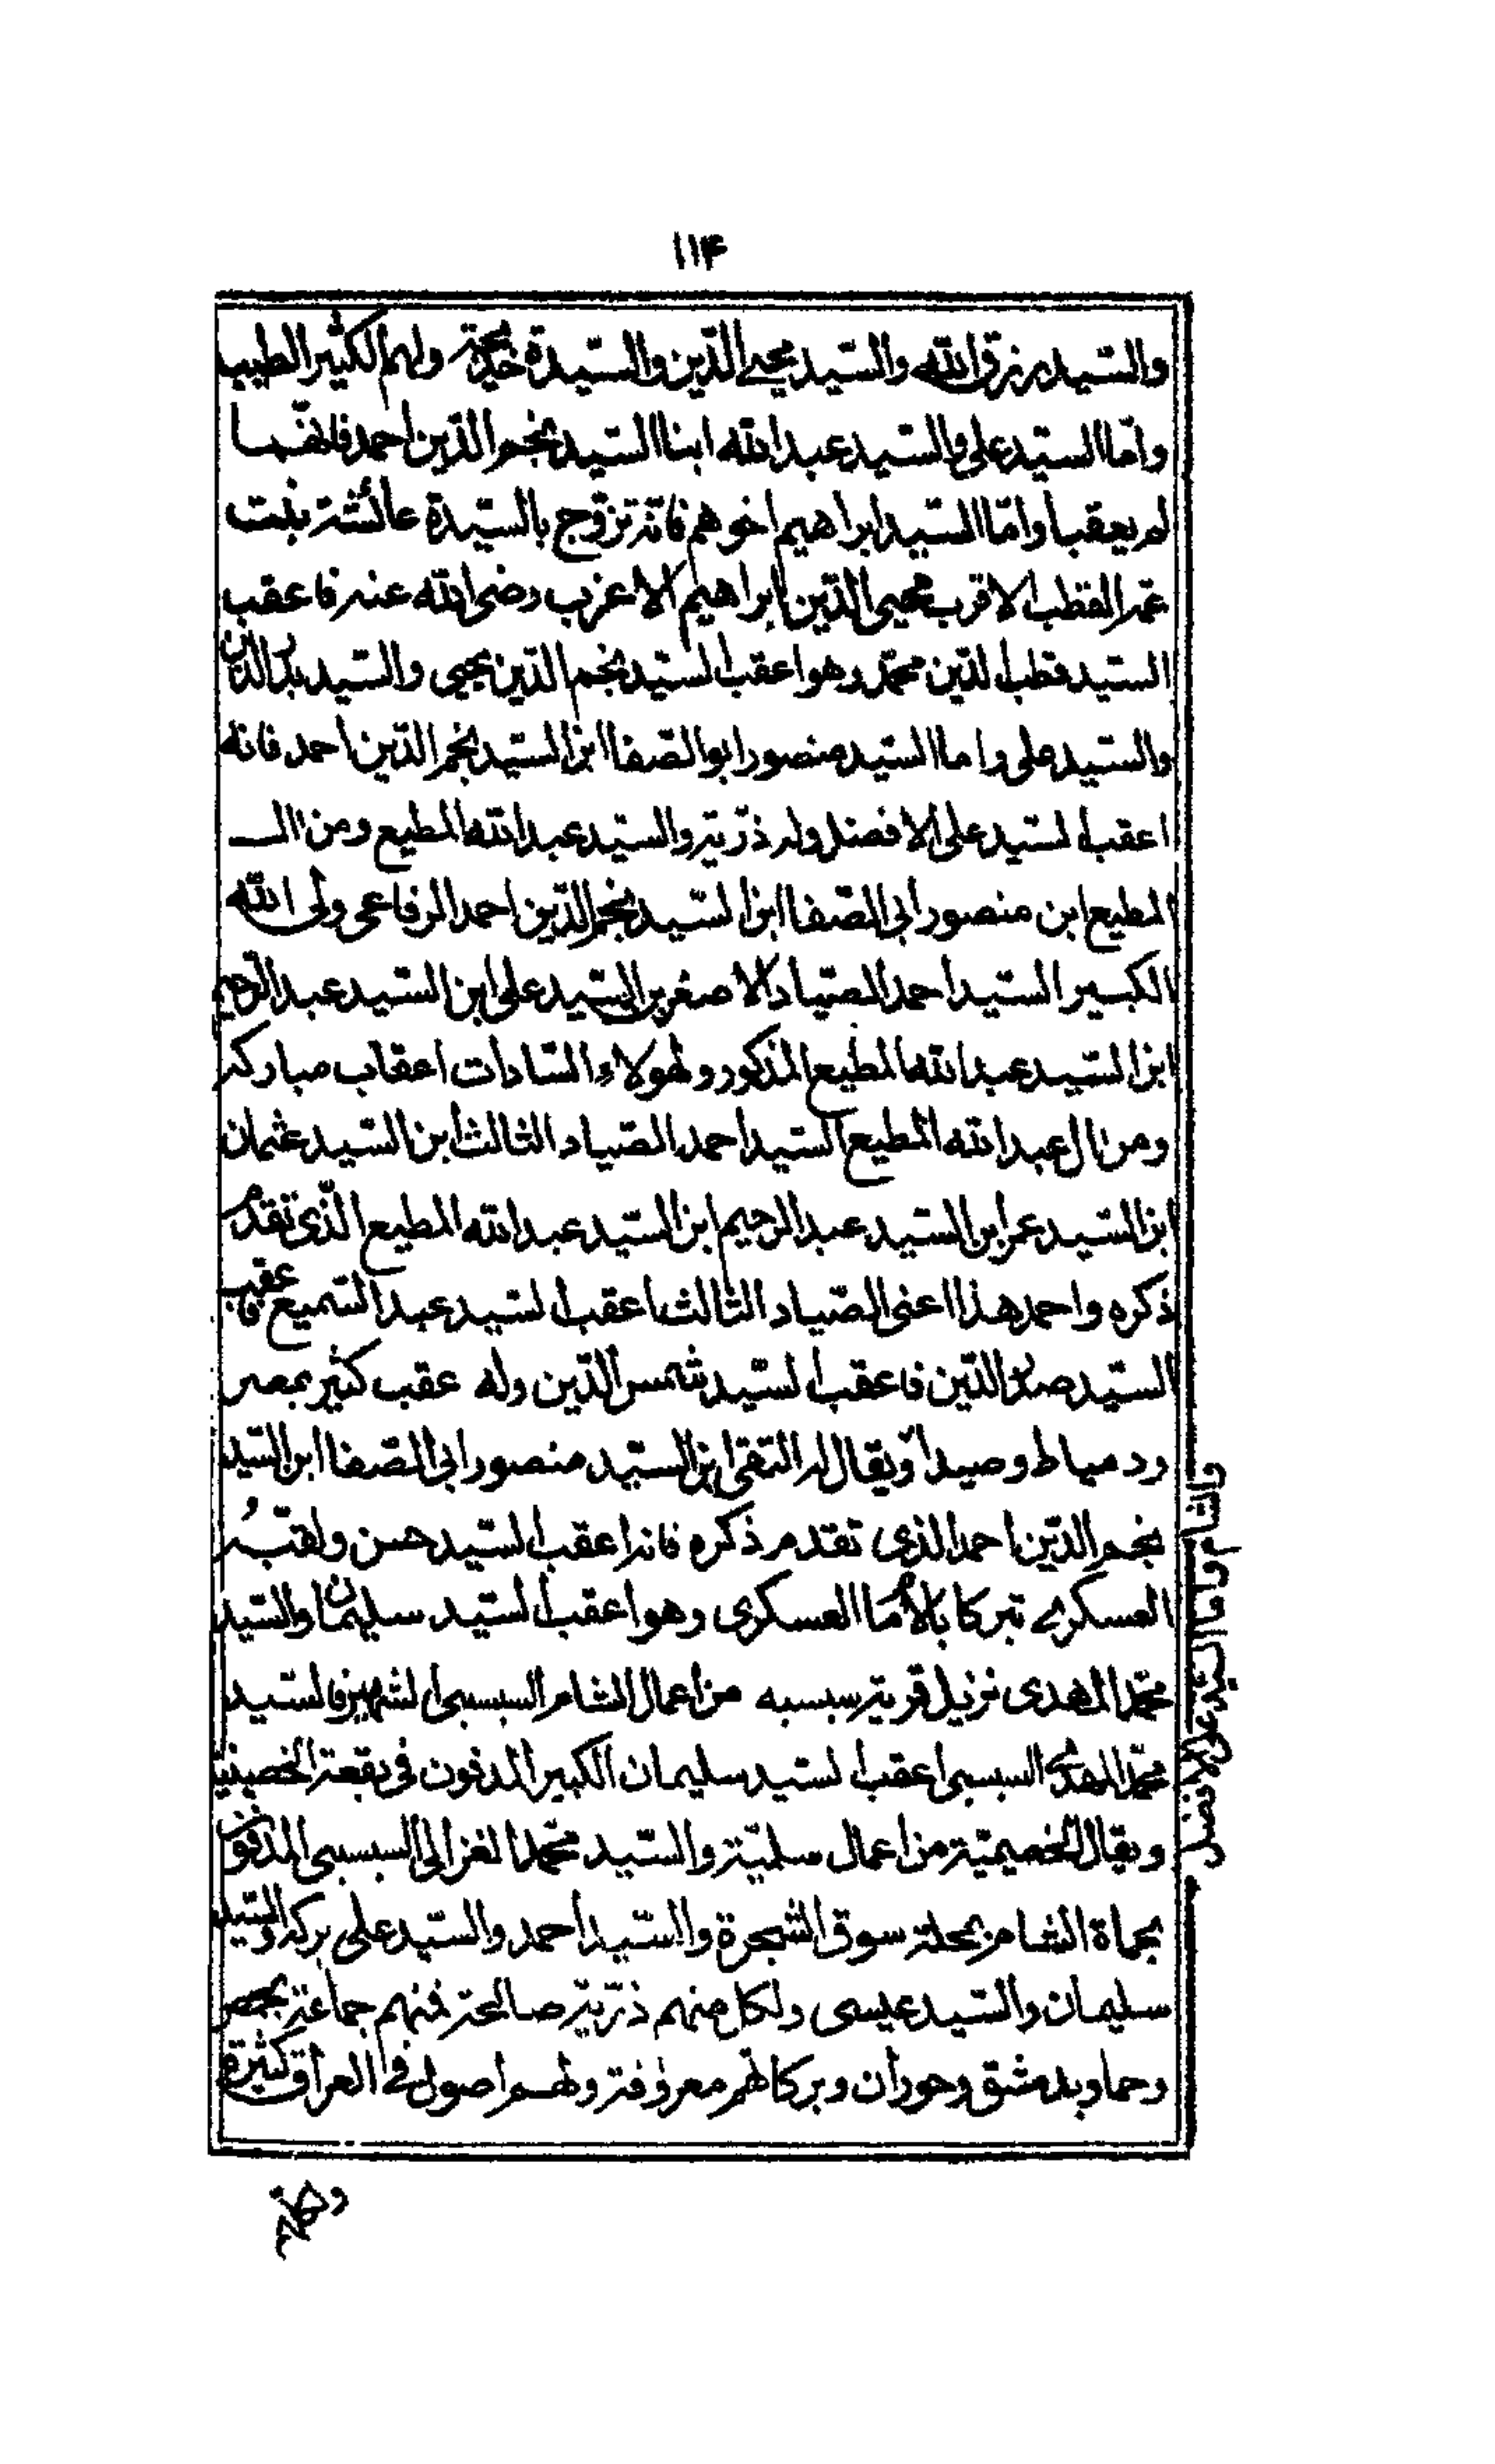 ١١۴
والسيد رزق الله والسيد محيي الدين والسيدة خديجة ولهم الكثير الطيب
وامّا السيد علي والسيد عبد الله ابنا السيد نجم الدين احمد فانهما
لم يعقبا وامّا السيد ابراهيم اخوهم فانه تزوج بالسيدة عائشة بنت
عمه القطب الاقرب محيى الدين ابراهيم الاعزب رضى الله عنه فاعقب
السيد قطب الدين محمد وهو اعقب السيد نجم الدين يحيى والسيد بدر الدين
والسيد على واما السيد منصور ابو الصفا ابن السيد نجم الدين احمد فانه
اعقب السيد على الافضل وله ذرّية والسيد عبد الله المطيع ومن ال
المطيع ابن منصور ابى الصفا ابن السيد نجم الدين احمد الرفاعى ولى الله
الكبير السيد احمد الصياد الاصغر بن السيد على ابن السيد عبد الرحيم
ابن السيد عبد الله المطيع المذكور ولهولاء السّادات اعقاب مباركه
ومن ال عبد الله المطيع السيد احمد الصياد الثالث ابن السيد عثمان
ابن السيد عمر ابن السيد عبد الرحيم ابن السيد عبد الله المطيع الذى تقدم
ذكره واحمد هذا اعنى الصيّاد الثالث اعقب السيد عبد السّميع فاعقب
السيد صدر الدّين فاعقب السيد شمس الدّين وله عقب كثير بمصر
ودمياط وصيدا ويقال له التقى ابن السيد منصور ابى الصّفا ابن السيّد
نجم الدّين احمد الذى تقدم ذكره فانه اعقب السيد حسن ولقبُه
العسكرى تبركا بالامام العسكرى وهو اعقب السيد سليمان والسيد
محمد المهدى نزيل قرية سبسبه من اعمال الشام السبسبى الشهير فالسيد
محمد المهدى السبسبى اعقب السيد سليمان الكبير المدفون فى بقعة الخصيبية
ويقال الخصيمّية من اعمال سلميّة والسّيد محمد الغزالى السبسبى المدفون
بحماة الشام بمحلة سوق الشجرة والسّيد احمد والسّيد على بركه والسّيد
سليمان والسّيد عيسى ولكل منهم ذرّيّة صالحة فمنهم جماعة بحمص
وحما وبدمشق وحوران وبركاتهم معروفة ولهم اصول فى العراق كثيرة
والشام واما السيد على الافضل